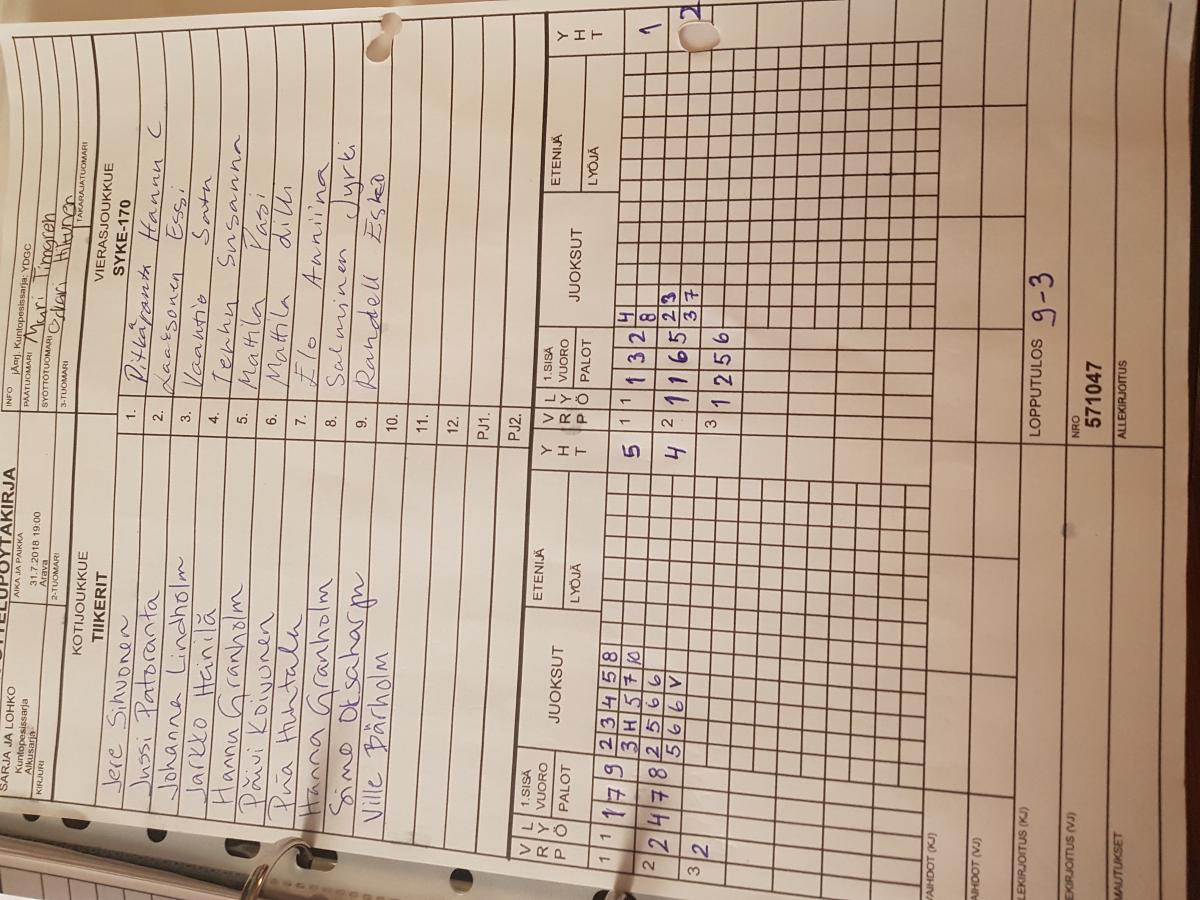 OTTELUPÖYTÄKIRJA
SARJA JA LOHKO
Kuntopesissarja
Alkusarja
AIKA JA PAIKKA
31.7.2018 19:00
Arava
INFO jÄerj. Kuntopesissarja: YDGC
PÄÄTUOMARI
SYÖTTÖTUOMARI
KIRJURI
2-TUOMARI
3-TUOMARI
TAKARAJATUOMARI
KOTIJOUKKUE
TIIKERIT
VIERASJOUKKUE
SYKE-170
Jere Sihvonen 1. Pitkäpanta Hannu C
Jussi Patoranta 2. Laaksonen Essi
Johanna Lindholm 3. Vaantio Satu
Jarkko Heinilä 4. Tenhu Susanna
Hannu Granholm 5. Mattila Pasi
Päivi Koivunen 6. Mattila
Piia Huhtala 7. Elo Anniina
Hanna Granholm 8. Salminen Jyrki
Simo Oksaharju 9. Randell Esko
Ville Bärholm 10.
11.
12.
PJ1.
PJ2.
VRP LYÖ 1.SISÄ VUORO PALOT JUOKSUT ETENIJÄ LYÖJÄ YHT VRP LYÖ 1.SISÄ VUORO PALOT JUOKSUT ETENIJÄ LYÖJÄ YHT
1 1 1 7 9 2 3 4 5 8 5 1 1 1 3 2 4 1
3 H 5 7 10 8
2 2 4 7 8 2 5 6 6 4 2 1 1 6 5 2 3 2
5 6 6 V 3 7
3 2 3 1 2 5 6
VAIHDOT (KJ)
VAIHDOT (VJ)
ALLEKIRJOITUS (KJ)
LOPPUTULOS 9-3
ALLEKIRJOITUS (VJ)
NRO
571047
HUOMAUTUKSET
ALLEKIRJOITUS